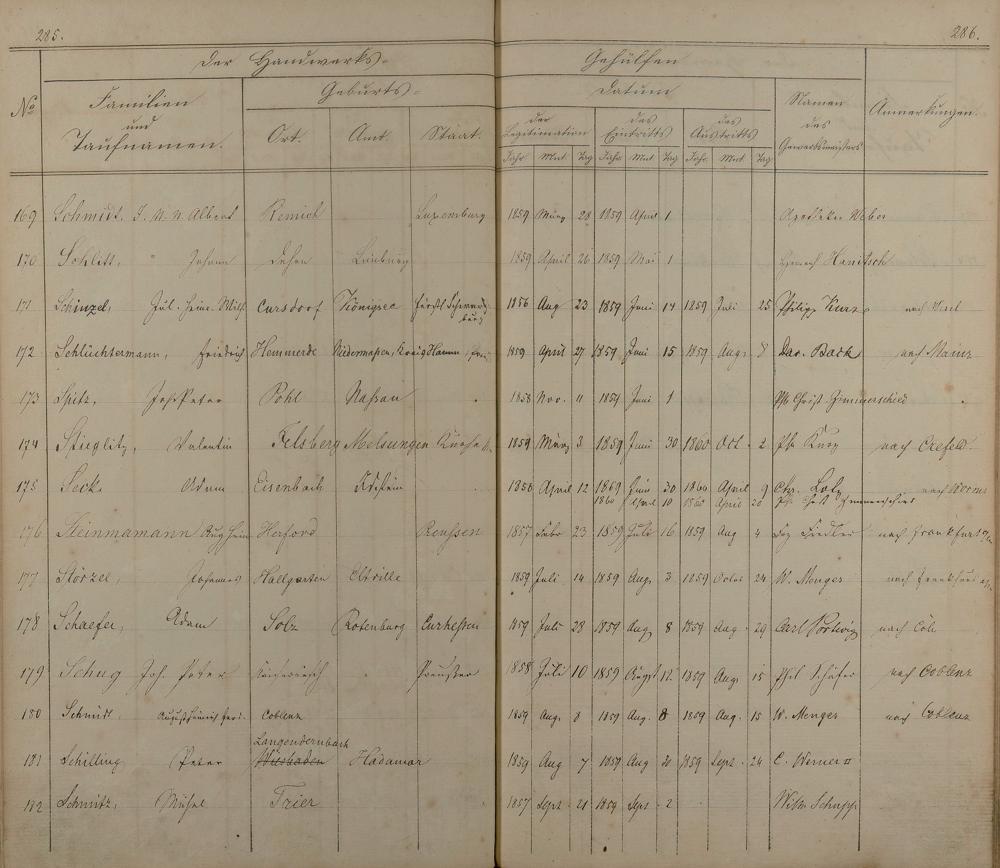 285. 286.
Der Handwerks- Gehülfen
No Familien und Taufnamen. Geburts- Datum Namen des Gewerbsmeisters Anmerkungen.
Ort. Amt. Staat. der Legitimation des Eintritts des Austritts
Jahr Mnt Tag Jahr Mnt Tag Jahr Mnt Tag
169 Schmidt, J. N. N. Albert Remich Luxemburg 1859 März 28 1859 April 1 Apotheker Weber
170 Schlitt, Johann Dehrn Limburg 1859 April 26 1859 Mai 1 Heinrich Hanitsch
171 Schinzel, Jul. Heinr. Wilh. Cursdorf Königsee Fürstl. Schwarzburg 1856 Aug 23 1859 Juni 14 1859 Juli 25 Philipp Kurz
172 Schlüchtermann, Friedrich Hemmerde Hamm 1859 April 27 1859 Juni 15 1859 Aug. 8 Dav. Back nach Mainz
173 Spitz, Joh. Peter Pohl Nassau 1858 Nov. 11 1859 Juni 1 Ph. Christ. Zimmerschied
174 Stieglitz, Valentin Felsberg Melsungen 1859 März 3 1859 Juni 30 1860 Oct. 2 Ph. Kurz nach Crefeld.
175 Seck, Adam Eisenbach Idstein 1856 April 12 1869 Juni 30 1860 April 9 Chr. Lotz nach Worms
1860 April 10 1860 April 20 Ph. Christ. Zimmerschied
176 Steinmamann Aug. Heinr. Herford Preussen 1857 Febr 23 1859 Juli 16 1859 Aug 4 Fiedler nach Frankfurt a/m
177 Störzel, Johannes Hallgarten Eltville 1859 Juli 14 1859 Aug. 3 1859 Octor 24 W. Menger nach Frankfurt a/m
178 Schaefer, Adam Solz Rotenburg Curhessen 1859 Juli 28 1859 Aug. 8 1859 Aug. 29 Carl nach Cöln
179 Schug Joh. Peter Preußen 1858 Juli 10 1859 August 12 1859 Aug. 15 Phil. Schäfer nach Coblenz
180 Schmidt, August Heinrich Ferd. Coblenz 1859 Aug. 8 1859 Aug. 8 1859 Aug. 15 W. Menger nach Coblenz
Langendernbach
181 Schilling Peter Wiesbaden Hadamar 1859 Aug 7 1859 Aug 20 1859 Sept. 24 C. Werner II
182 Schmitz, Michel Trier 1857 Sept. 21 1859 Sept. 2 Wilh. Schupp